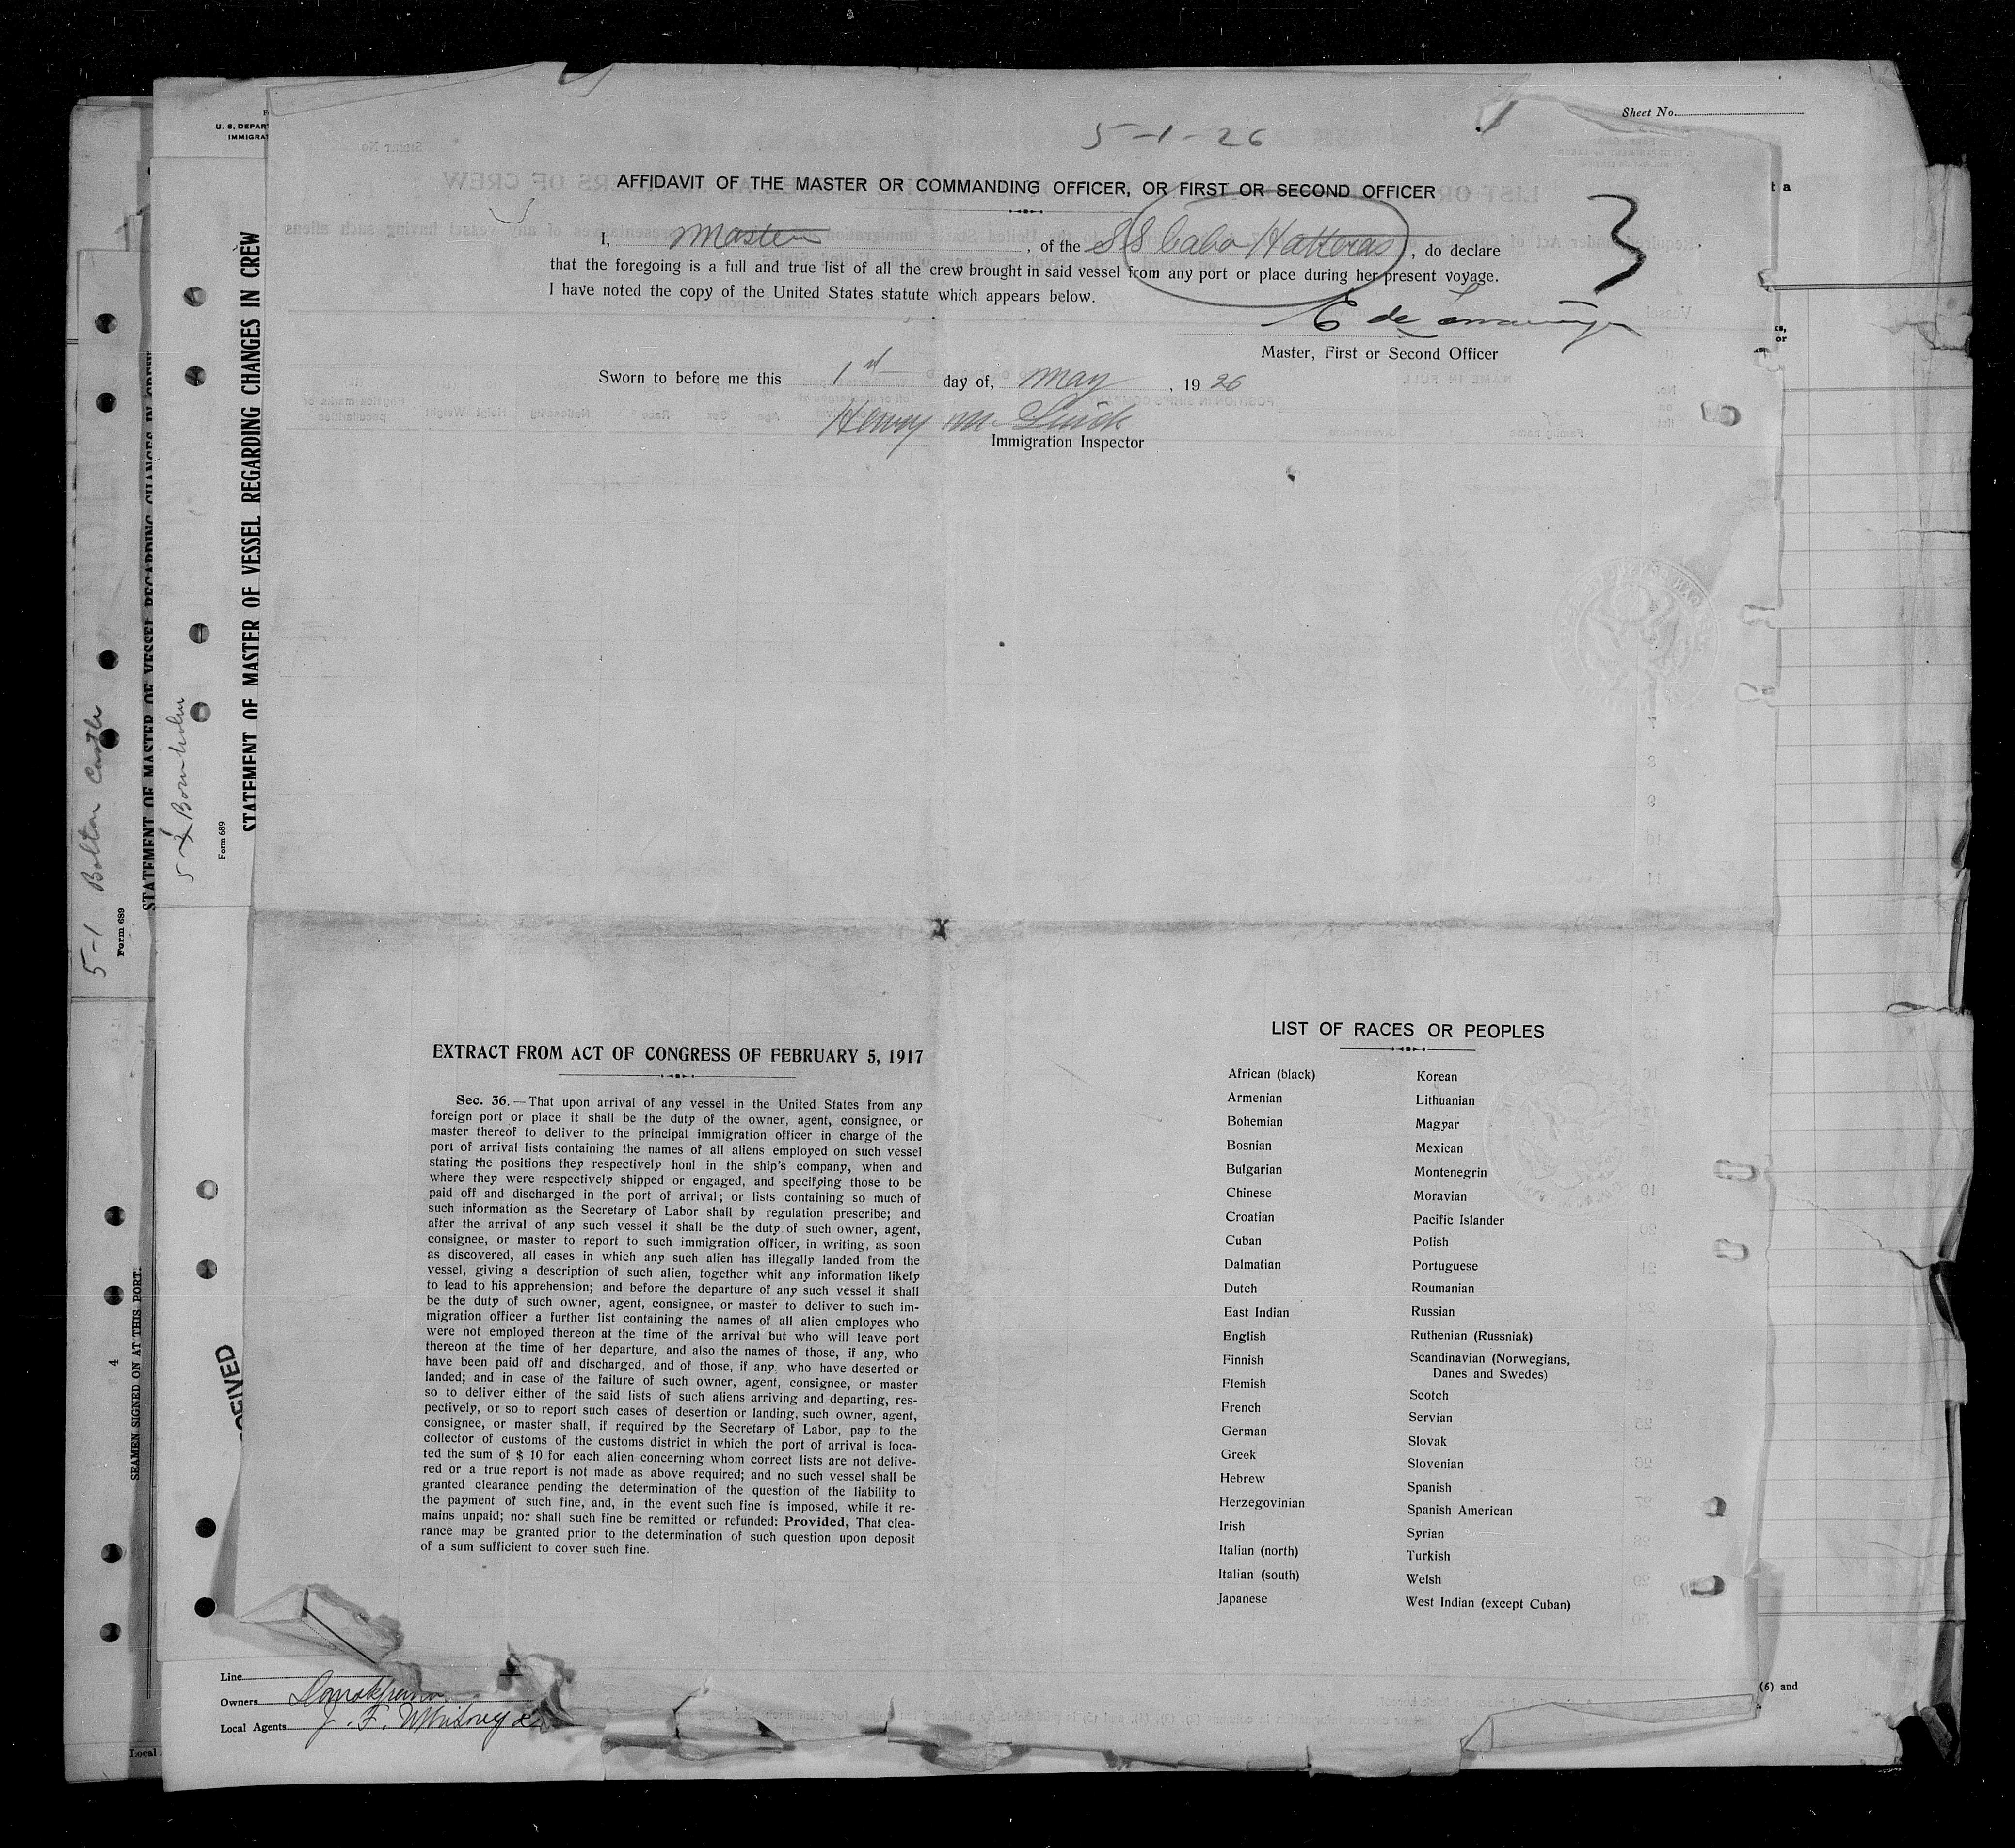 Sheet No.
U. S. DEPAR
IMMIGRA
5-1-26
AFFIDAVIT OF THE MASTER OR COMMANDING OFFICER, OR FIRST OR SECOND OFFICER
3
I, Master, of the SS Cabo Hatteras, do declare
that the foregoing is a full and true list of all the crew brought in said vessel from any port or place during her present voyage.
I have noted the copy of the United States statute which appears below.
E de
Master, First or Second Officer
Sworn to before me this 1st day of, May, 1926
Henry
Immigration Inspector
STATEMENT OF MASTER OF VESSEL REGARDING CHANGES IN CREW
STATEMENT OF MASTER OF VESSEL REGARDING CHANGES IN CREW
5-1 Bolton Castle
Form 689
5-1 Bornholm
Form 689
X
EXTRACT FROM ACT OF CONGRESS OF FEBRUARY 5, 1917
Sec. 36.—That upon arrival of any vessel in the United States from any
foreign port or place it shall be the duty of the owner, agent, consignee, or
master thereof to deliver to the principal immigration officer in charge of the
port of arrival lists containing the names of all aliens employed on such vessel
stating the positions they respectively honl in the ship's company, when and
where they were respectively shipped or engaged, and specifying those to be
paid off and discharged in the port of arrival; or lists containing so much of
such information as the Secretary of Labor shall by regulation prescribe; and
after the arrival of any such vessel it shall be the duty of such owner, agent,
consignee, or master to report to such immigration officer, in writing, as soon
as discovered, all cases in which any such alien has illegally landed from the
vessel, giving a description of such alien, together whit any information likely
to lead to his apprehension; and before the departure of any such vessel it shall
be the duty of such owner, agent, consignee, or master to deliver to such im-
migration officer a further list containing the names of all alien employes who
were not employed thereon at the time of the arrival but who will leave port
thereon at the time of her departure, and also the names of those, if any, who
have been paid off and discharged, and of those, if any. who have deserted or
landed; and in case of the failure of such owner, agent, consignee, or master
so to deliver either of the said lists of such aliens arriving and departing, res-
pectively, or so to report such cases of desertion or landing, such owner, agent,
consignee, or master shall, if required by the Secretary of Labor, pay to the
collector of customs of the customs district in which the port of arrival is loca-
ted the sum of $ 10 for each alien concerning whom correct lists are not delive-
red or a true report is not made as above required; and no such vessel shall be
granted clearance pending the determination of the question of the liability to
the payment of such fine, and, in the event such fine is imposed, while it re-
mains unpaid; nor shall such fine be remitted or refunded: Provided, That clea-
rance may be granted prior to the determination of such question upon deposit
of a sum sufficient to cover such fine.
LIST OF RACES OR PEOPLES
African (black)
Armenian
Bohemian
Bosnian
Bulgarian
Chinese
Croatian
Cuban
Dalmatian
Dutch
East Indian
English
Finnish
Flemish
French
German
Greek
Hebrew
Herzegovinian
Irish
Italian (north)
Italian (south)
Japanese
Korean
Lithuanian
Magyar
Mexican
Montenegrin
Moravian
Pacific Islander
Polish
Portuguese
Roumanian
Russian
Ruthenian (Russniak)
Scandinavian (Norwegians,
Danes and Swedes)
Scotch
Servian
Slovak
Slovenian
Spanish
Spanish American
Syrian
Turkish
Welsh
West Indian (except Cuban)
4
SEAMEN SIGNED ON AT THIS PORT.
CEIVED
Line
Owners
Local Agents J. F. Whitney &
Local
(6) and